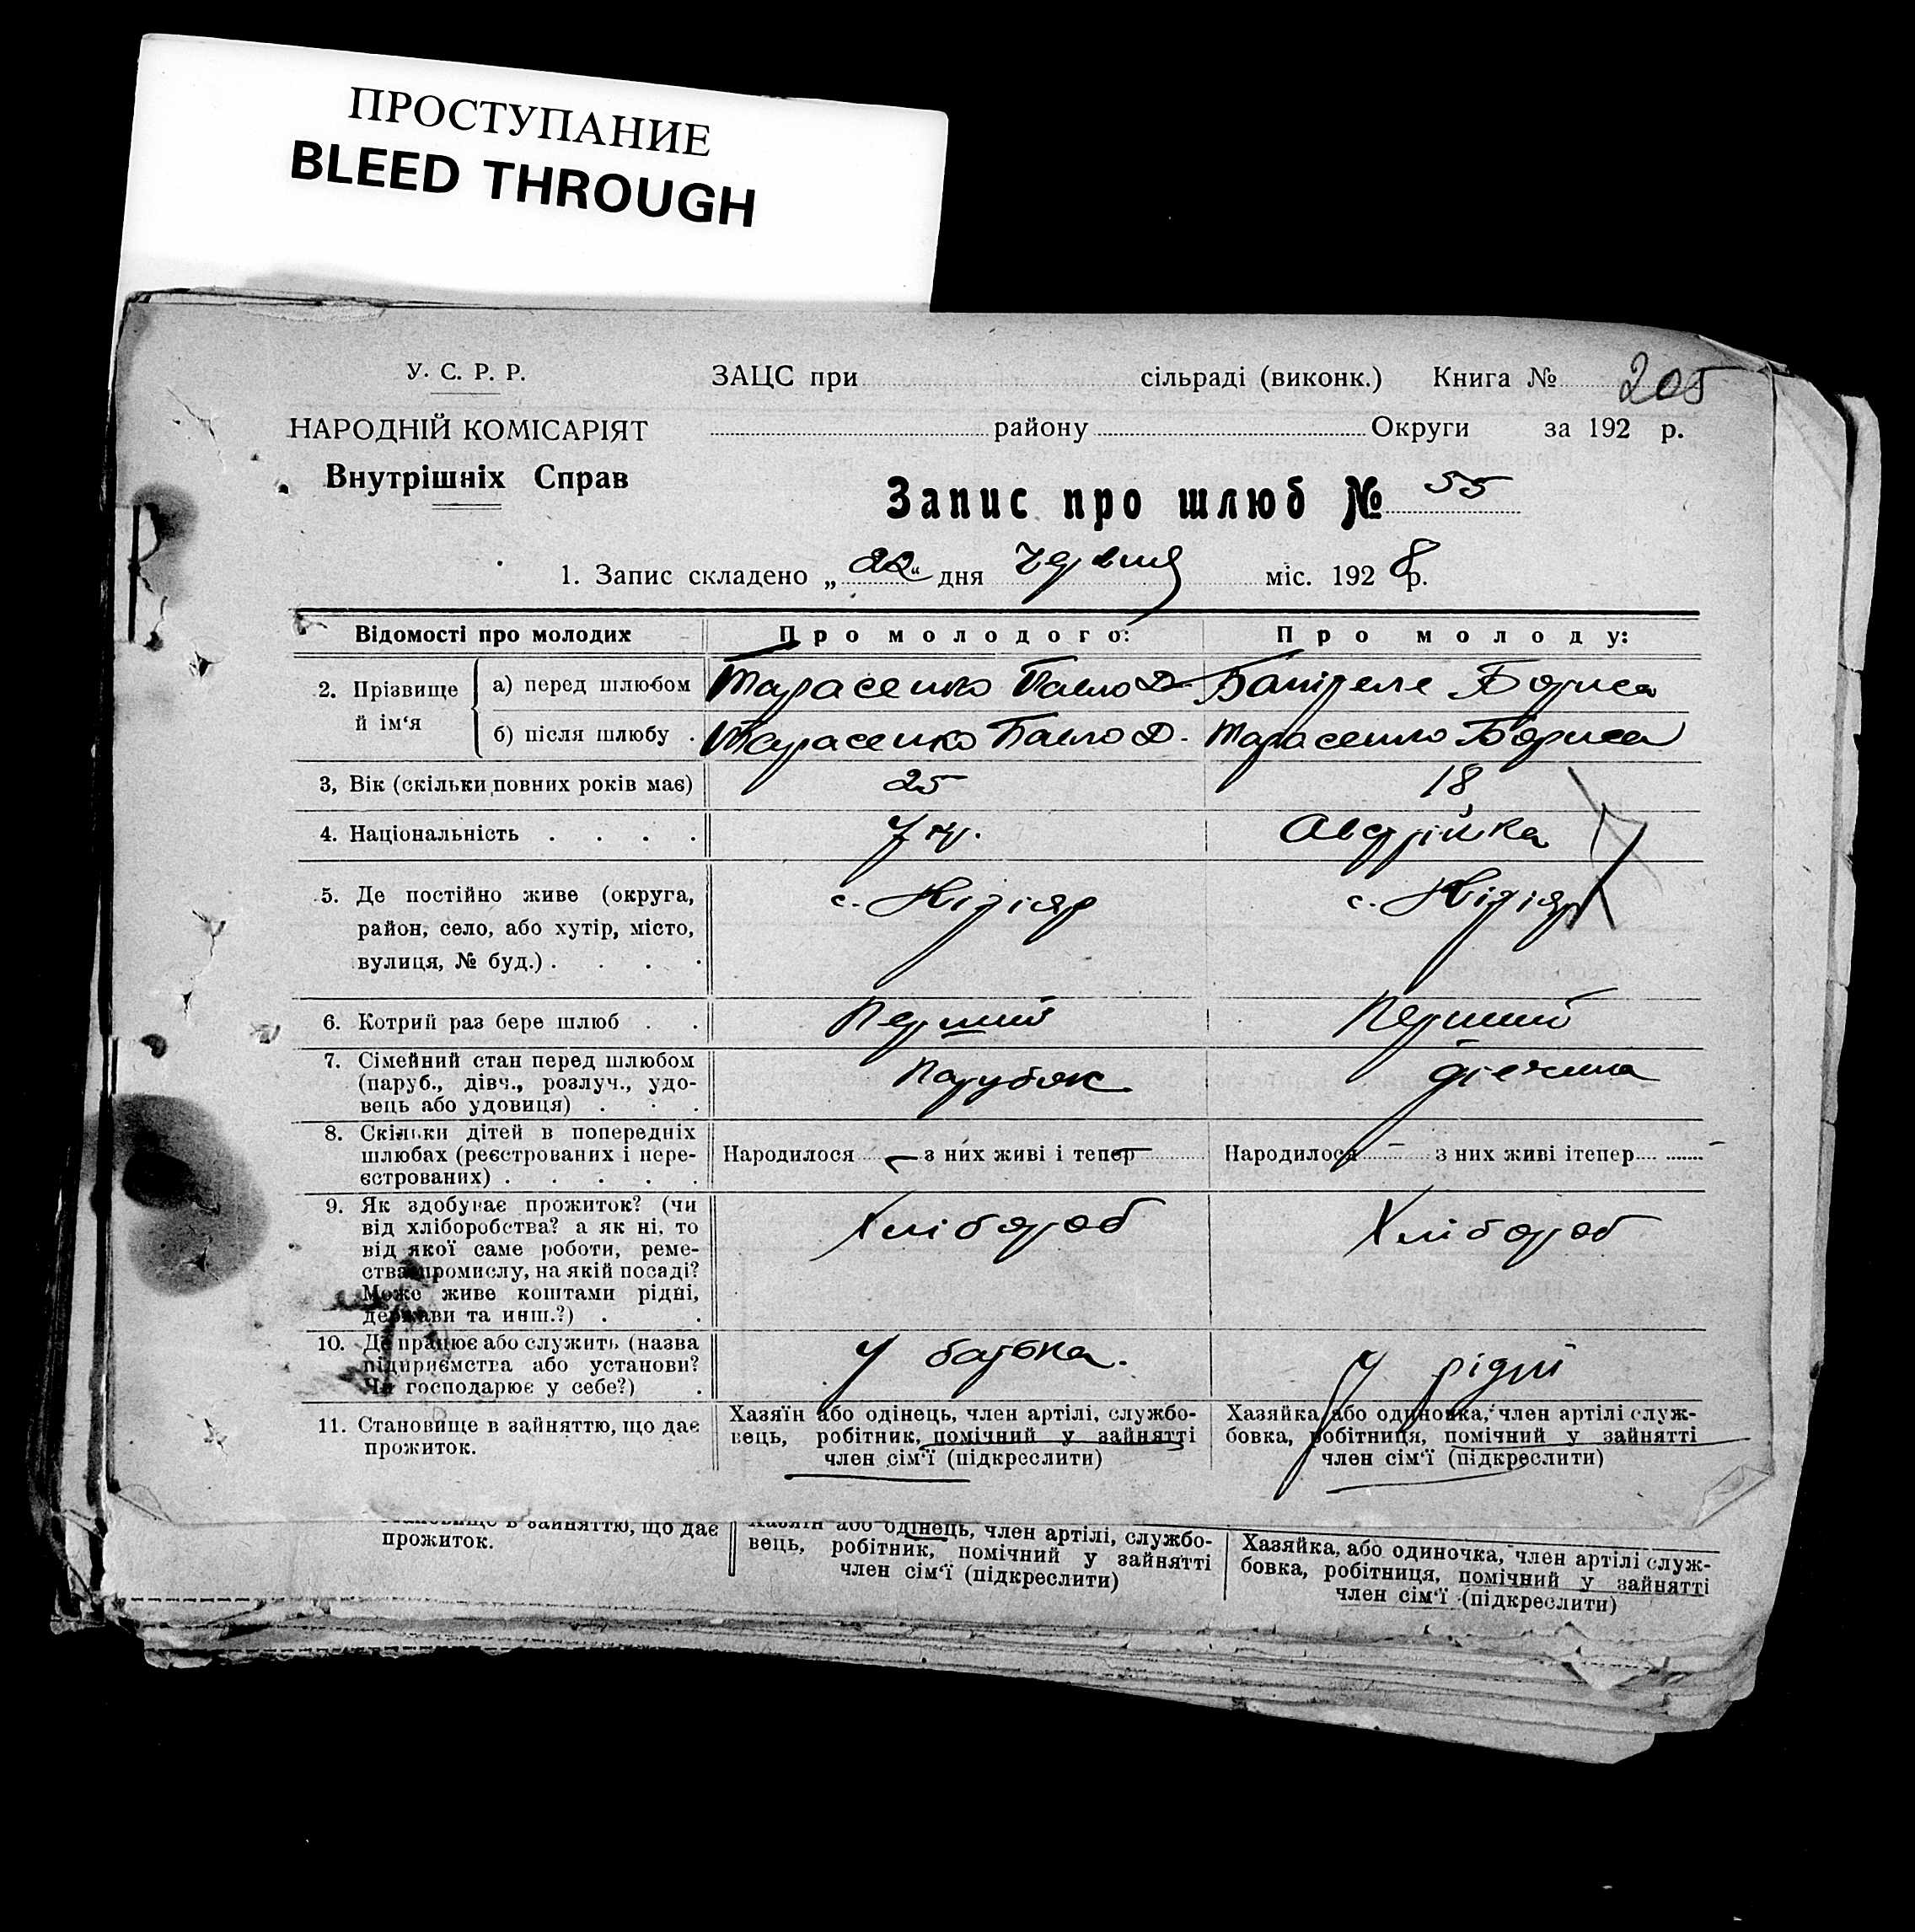 ПРОСТУПАНИЕ
BLEED THROUGH
У. С. Р. Р.
ЗАЦС при сільраді (виконк.) Книга № 205
НАРОДНІЙ КОМІСАРІЯТ
району Округи за 192 р.
Внутрішніх Справ
Запис про шлюб № 55
1. Запис складено „22“ дня Червня міс. 1928 р.
Відомості про молодих
Про молодого:
Про молоду:
2. Прізвище й ім‘я
а) перед шлюбом
Тарасенко Павло Д.
Бориса
б) після шлюбу .
Тарасенко Павло Д.
Тарасенко Бориса
3, Вік (скільки повних років має)
25
18
4. Національність . . . .
Укр.
Австрійка
5. Де постійно живе (округа,
район, село, або хутір, місто,
вулиця, № буд.) . . . .
с. Кізіяр
с. Кізіяр
6. Котрий раз бере шлюб . .
Перший
Перший
7. Сімейний стан перед шлюбом
(паруб., дівч., розлуч., удо-
вець або удовиця) . . .
Парубок
Дівчина
8. Скільки дітей в попередніх
шлюбах (реєстрованих і нере-
єстрованих) . . . . .
Народилося — з них живі і тепер —
Народилося — з них живі ітепер —
9. Як здобуває прожиток? (чи
від хліборобства? а як ні, то
від якої саме роботи, реме-
ства промислу, на якій посаді?
Може живе коштами рідні,
держави та инш.?) . .
Хлібороб
Хлібороб
10. Де працює або служить (назва
підприємства або установи?
Чи господарює у себе?) .
У батька.
У рідні
11. Становище в зайняттю, що дає
прожиток.
Хазяїн або одінець, член артілі, службо-
вець, робітник, помічний у зайнятті
член сім‘ї (підкреслити)
Хазяйка, або одиночка, член артілі служ-
бовка, робітниця, помічний у зайнятті
член сім‘ї (підкреслити)
становище в зайняттю, що дає
прожиток.
Хазяїн або одінець, член артілі, службо-
вець, робітник, помічний у зайнятті
член сім‘ї (підкреслити)
Хазяйка, або одиночка, член артілі служ-
бовка, робітниця, помічний у зайнятті
член сім‘ї (підкреслити)